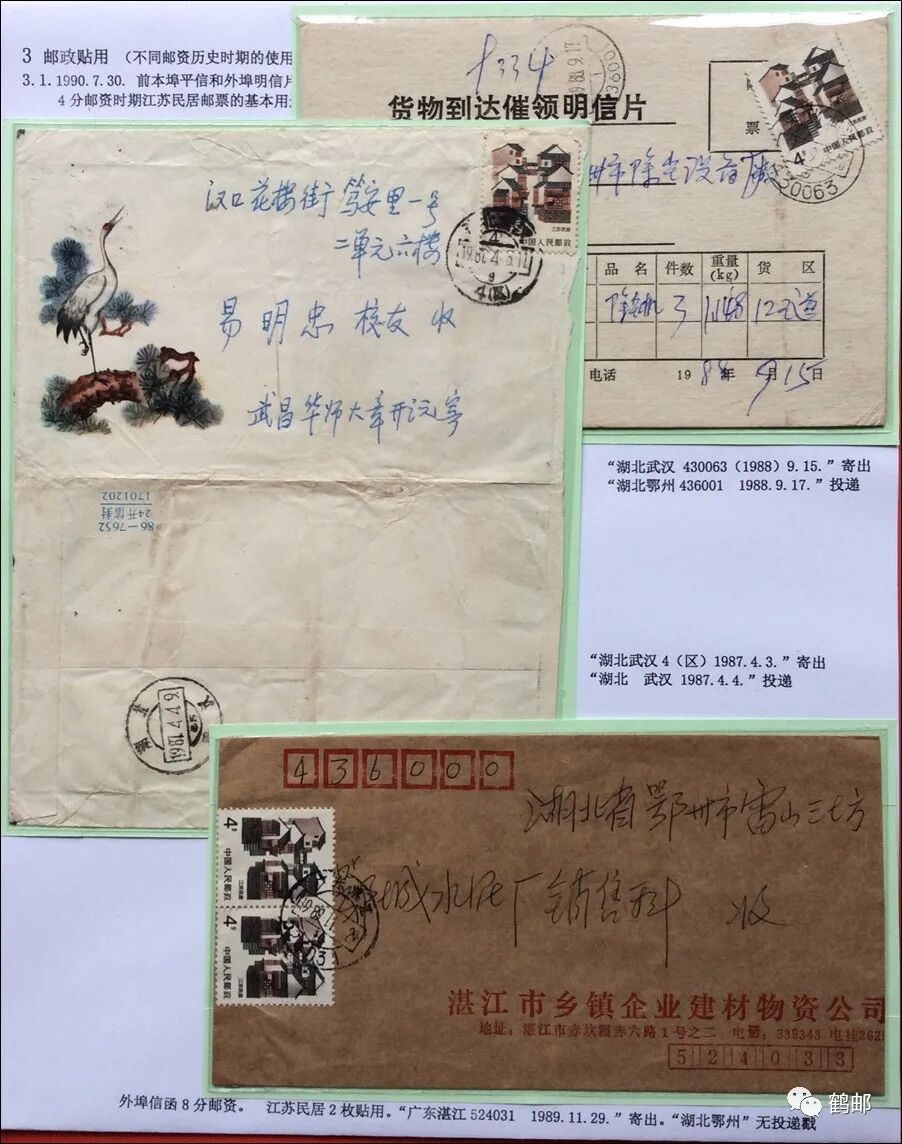 3 邮政贴用 (不同邮资历史时期的使用
3.1.1990.7.30. 前本埠平信和外埠明信片
4分邮资时期江苏民居邮票的基本用
货物到达催领明信片
票
4分
中国人民邮政
430063
州市除尘设备
品 名 件数 重量(kg) 货 区
3 1148 12
电话 1988年9月15日
汉口花楼街笃安里一号
二单元六楼
易明忠 校友 收
武昌华师大章开沅寄
江苏民居
中国人民邮政
4(区)
86-7652
24开信封
1701202
1987.4.4.9
“湖北武汉 430063 (1988) 9.15.” 寄出
“湖北鄂州 436001 1988.9.17.” 投递
“湖北武汉 4 (区) 1987.4.3.” 寄出
“湖北 武汉 1987.4.4.” 投递
436000
湖北省鄂州市雷山三七方
城水泥厂销售科 收
4分
中国人民邮政
江苏民居
4分
中国人民邮政
江苏民居
湛江市乡镇企业建材物资公司
地址: 湛江市赤坎霞赤六路1号之二 电话: 339343 电挂262
524033
外埠信函8分邮资。 江苏民居2枚贴用。“广东湛江 524031 1989.11.29.” 寄出。“湖北鄂州” 无投递戳
鹤邮